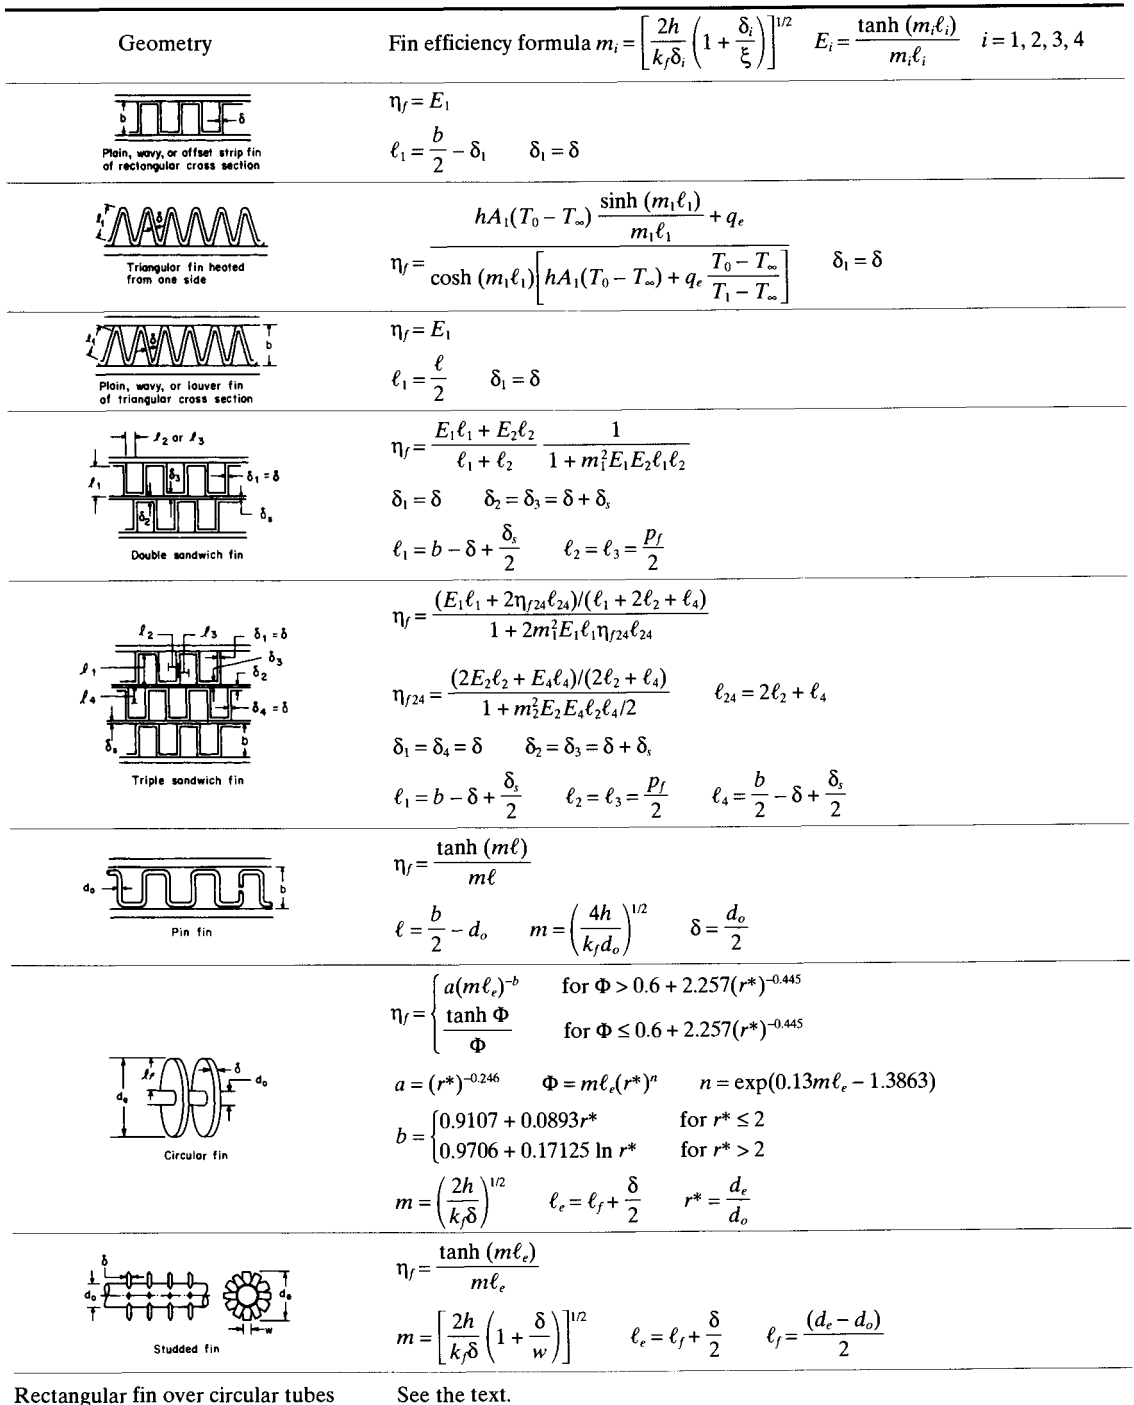 Geometry
Fin efficiency formula mᵢ = [2h/(k_fδᵢ) (1 + δᵢ/ξ)]^{1/2} Eᵢ = tanh (mᵢℓᵢ)/(mᵢℓᵢ) i = 1, 2, 3, 4
b
δ
Plain, wavy, or offset strip fin
of rectangular cross section
η_f = E₁
ℓ₁ = b/2 − δ₁ δ₁ = δ
ℓ₁
δ
Triangular fin heated
from one side
η_f = (hA₁(T₀ − T∞) sinh (m₁ℓ₁)/(m₁ℓ₁) + qₑ)/(cosh (m₁ℓ₁)[hA₁(T₀ − T∞) + qₑ (T₀ − T∞)/(T₁ − T∞)]) δ₁ = δ
ℓ₁
δ
b
Plain, wavy, or louver fin
of triangular cross section
η_f = E₁
ℓ₁ = ℓ/2 δ₁ = δ
ℓ₂ or ℓ₃
ℓ₁
δ₃
δ₁ = δ
δ₂
δₛ
Double sandwich fin
η_f = (E₁ℓ₁ + E₂ℓ₂)/(ℓ₁ + ℓ₂) 1/(1 + m₁²E₁E₂ℓ₁ℓ₂)
δ₁ = δ δ₂ = δ₃ = δ + δₛ
ℓ₁ = b − δ + δₛ/2 ℓ₂ = ℓ₃ = p_f/2
ℓ₂
ℓ₃
δ₁ = δ
δ₃
ℓ₁
δ₂
ℓ₄
δ₄ = δ
δₛ
b
Triple sandwich fin
η_f = ((E₁ℓ₁ + 2η_{f24}ℓ₂₄)/(ℓ₁ + 2ℓ₂ + ℓ₄))/(1 + 2m₁²E₁ℓ₁η_{f24}ℓ₂₄)
η_{f24} = ((2E₂ℓ₂ + E₄ℓ₄)/(2ℓ₂ + ℓ₄))/(1 + m₂²E₂E₄ℓ₂ℓ₄/2) ℓ₂₄ = 2ℓ₂ + ℓ₄
δ₁ = δ₄ = δ δ₂ = δ₃ = δ + δₛ
ℓ₁ = b − δ + δₛ/2 ℓ₂ = ℓ₃ = p_f/2 ℓ₄ = b/2 − δ + δₛ/2
dₒ
b
Pin fin
η_f = tanh (mℓ)/(mℓ)
ℓ = b/2 − dₒ m = (4h/(k_f dₒ))^{1/2} δ = dₒ/2
ℓ_f
δ
dₒ
dₑ
Circular fin
η_f = { a(mℓₑ)^{−b} for Φ > 0.6 + 2.257(r*)^{−0.445}
tanh Φ/Φ for Φ ≤ 0.6 + 2.257(r*)^{−0.445}
a = (r*)^{−0.246} Φ = mℓₑ(r*)ⁿ n = exp(0.13mℓₑ − 1.3863)
b = { 0.9107 + 0.0893r* for r* ≤ 2
0.9706 + 0.17125 ln r* for r* > 2
m = (2h/(k_fδ))^{1/2} ℓₑ = ℓ_f + δ/2 r* = dₑ/dₒ
δ
dₒ
dₑ
w
Studded fin
η_f = tanh (mℓₑ)/(mℓₑ)
m = [2h/(k_fδ) (1 + δ/w)]^{1/2} ℓₑ = ℓ_f + δ/2 ℓ_f = (dₑ − dₒ)/2
Rectangular fin over circular tubes
See the text.